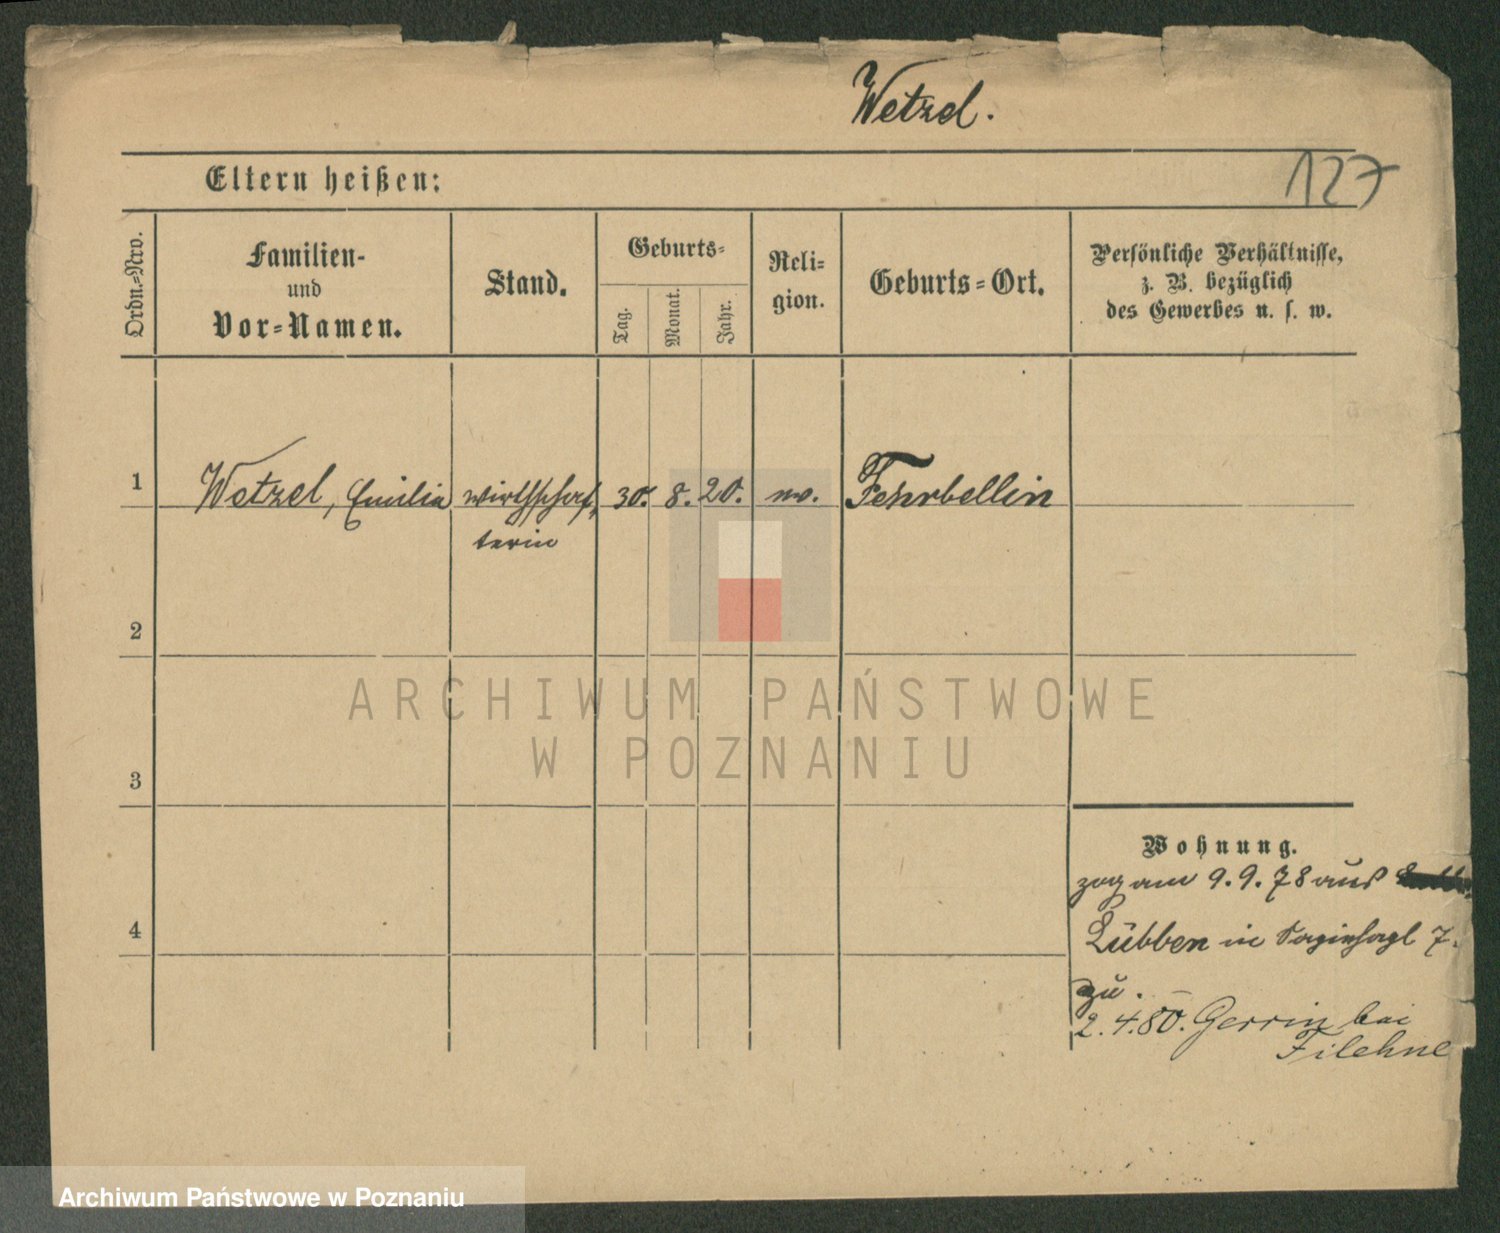 Wetzel.
127
Eltern heißen:
Ordn.=Nro.
Familien-
und
Vor=Namen.
Stand.
Geburts=
Tag.
Monat.
Jahr.
Reli=
gion.
Geburts=Ort.
Persönliche Verhältnisse,
z. B. bezüglich
des Gewerbes u. s. w.
1
Wetzel, Emilia
wirthschaf
terin
30. 8. 20.
Fehrbellin
2
3
4
ARCHIWUM PAŃSTWOWE
W POZNANIU
Wohnung.
zog am 9. 9. 78 aus
Lübben in 7.
zu.
2. 4. 80. Gerrin bei
Filehne
Archiwum Państwowe w Poznaniu